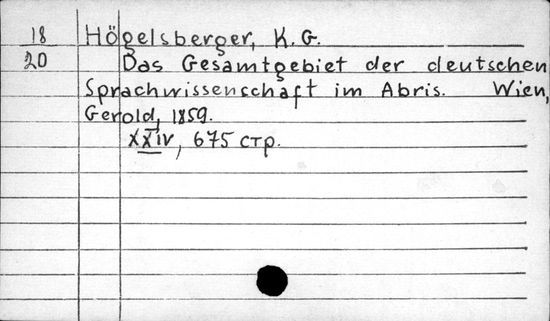 18 Högelsberger, K. G.
20 Das Gesamtgebiet der deutschen
Sprachwissenschaft im Abris. Wien,
Gerold, 1859.
XXIV, 675 стр.